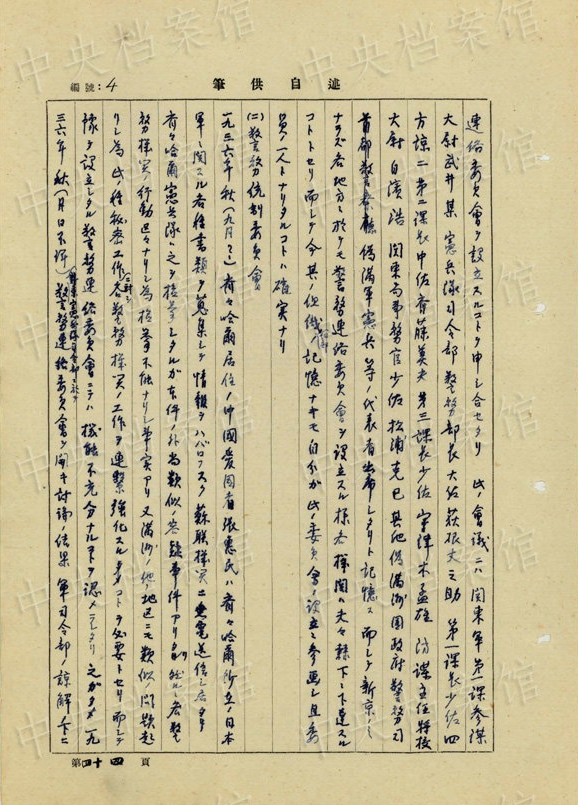 述自供筆
編號:4
連絡委員會ヲ設立スルコトヲ申シ合セタリ 此ノ會議ニハ関東軍第一課参謀
大尉武井某 憲兵隊司令部警務部長大佐荻根丈之助 第一課長少佐四
方諒二 第二課長中佐齊藤美夫 第三課長少佐宇津木孟雄 防諜主任将校
大尉白濱浩 関東局事務官少佐松浦克巳 其他偽満洲国政府警務司
首都警察廳 偽満軍憲兵等ノ代表者出席シタリト記憶ス 而シテ新京ノミ
ナラズ各地方ニ於テモ警務連絡委員會ヲ設立スル様各機関ハ夫々隷下ニ下達スル
コトトセリ 而シテ今其ノ組織ノ記憶ナキモ自分ガ此ノ委員會ノ設立ニ参画シ且委
員ノ一人トナリタルコトハ確実ナリ
(二)警務統制委員會
一九三六年秋(九月 )齊々哈爾居住ノ中國愛国者張惠民ハ齊々哈爾所在ノ日本
軍ニ関スル各種書類ヲ蒐集シテ情報ヲハバロフスク蘇聯機関ニ無電送信シ居タリ
齊々哈爾憲兵隊ハ之ヲ検挙シタルガ本件ノ外尚類似ノ容疑事件アリタリ 然シ各警
務機関ノ行動区々ナリシ為検挙不能ナリシ事実アリ 又満洲ノ他地区ニモ類似問題起
リシ為此ノ種秘密工作ニ対シ各警務機関ノ工作ヲ連繋強化スルコトヲ必要トセリ 而シテ
嚮ニ設立シタル警務連絡委員會ニテハ機能不充分ナルコトヲ認メラレタリ 之ガタメ一九
三六年秋(月日不詳)警務連絡委員會ヲ開キ討議ノ結果 軍司令部ノ諒解ノ下ニ
第四十四頁
中央档案馆